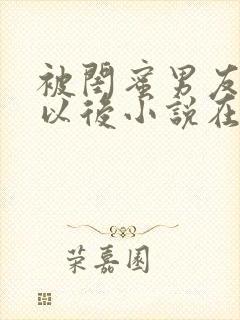 被閨蜜男友
以後小說在
荣嘉園